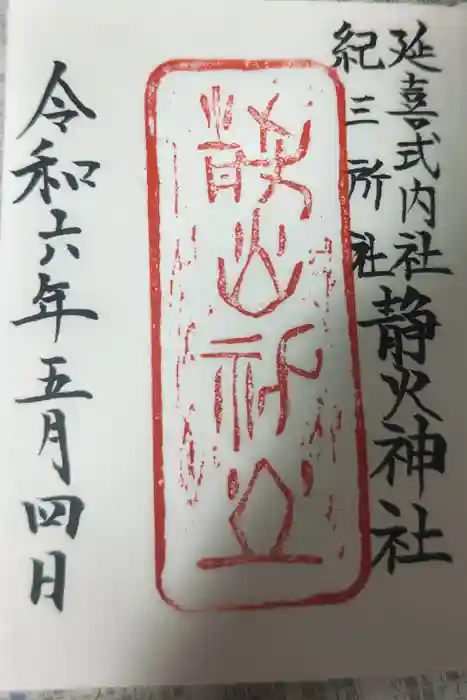 延喜式内社
紀三所社
静火神社
令和六年五月四日